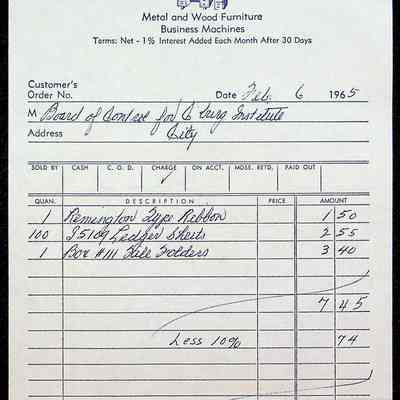 Metal and Wood Furniture
Business Machines
Terms: Net - 1% Interest Added Each Month After 30 Days
Customer's
Order No. Date Feb. 6 1965
M Board of Control for Institute
Address City
SOLD BY CASH C. O. D. CHARGE ON ACCT. MDSE. RETD. PAID OUT
✓
QUAN. DESCRIPTION PRICE AMOUNT
1 Remington Type Ribbon 1 50
100 Ledger Sheets 2 55
1 Box #111 File Folders 3 40
7 45
Less 10% 74